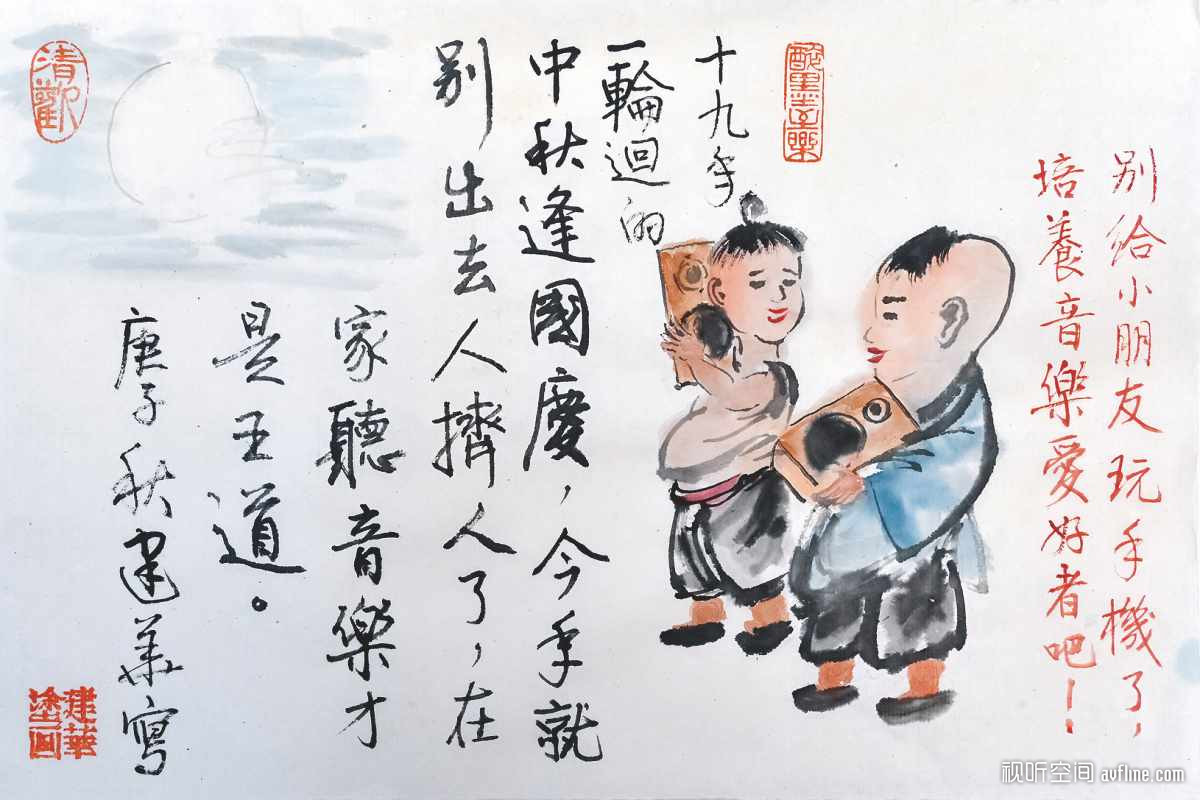 别給小朋友玩手機了，
培養音樂愛好者吧！
十九年
一輪迴的
中秋逢國慶，今年就
别出去人擠人了，在
家聽音樂才
是王道。
庚子秋建華寫
建華
塗画
视听空间 avfline.com